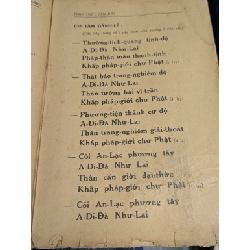 — Thường-tịch-quang tịnh-độ
A-Di-Đà Như-Lai
Pháp-thân mầu thanh-tịnh
Khắp pháp-giới chư Phật
— Thật báo trang-nghiêm độ
A-Di-Đà Như-Lai
Thân tướng hải vi-trần
Khắp pháp-giới chư Phật
— Phương-tiện thánh cư độ
A-Di-Đà Như-Lai
Thân trang-nghiêm giải-thoát
Khắp pháp-giới chư Phật
— Cõi An-Lạc phương tây
A-Di-Đà Như Lai
Thân căn giới đại-thừa
Khắp pháp-giới chư Phật
— Cõi An-Lạc phương tây
A-Di-Đà Như Lai